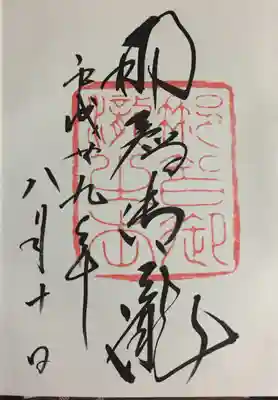 那智御瀧
平成廿九年
八月十日